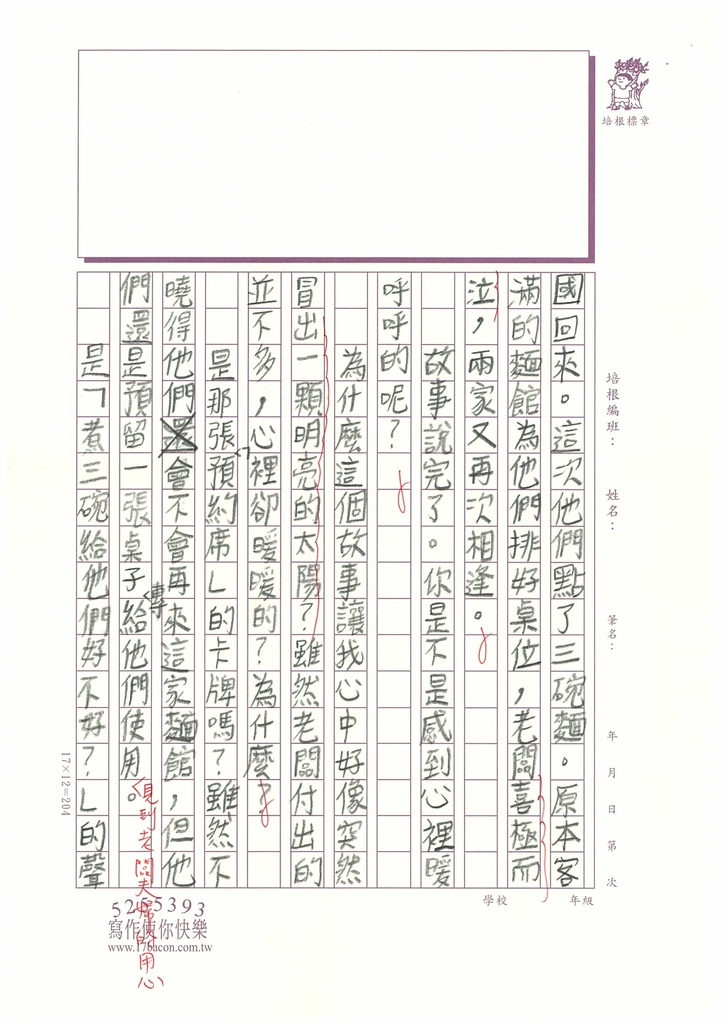 培根標章
培根編班：　姓名：　筆名：　年　月　日　第　次
學校　年級
國回來。這次他們點了三碗麵。原本客
滿的麵館為他們排好桌位，老闆喜極而
泣，兩家又再次相逢。
故事說完了。你是不是感到心裡暖
呼呼的呢？
為什麼這個故事讓我心中好像突然
冒出一顆明亮的太陽？雖然老闆付出的
並不多，心裡卻暖暖的？為什麼？
是那張「預約席」的卡牌嗎？雖然不
曉得他們還會不會再來這家麵館，但他
們還是預留一張桌子專給他們使用。
見到老闆夫婦的用心
是「煮三碗給他們好不好？」的聲
17×12=204
5255393
寫作使你快樂
www.178acon.com.tw